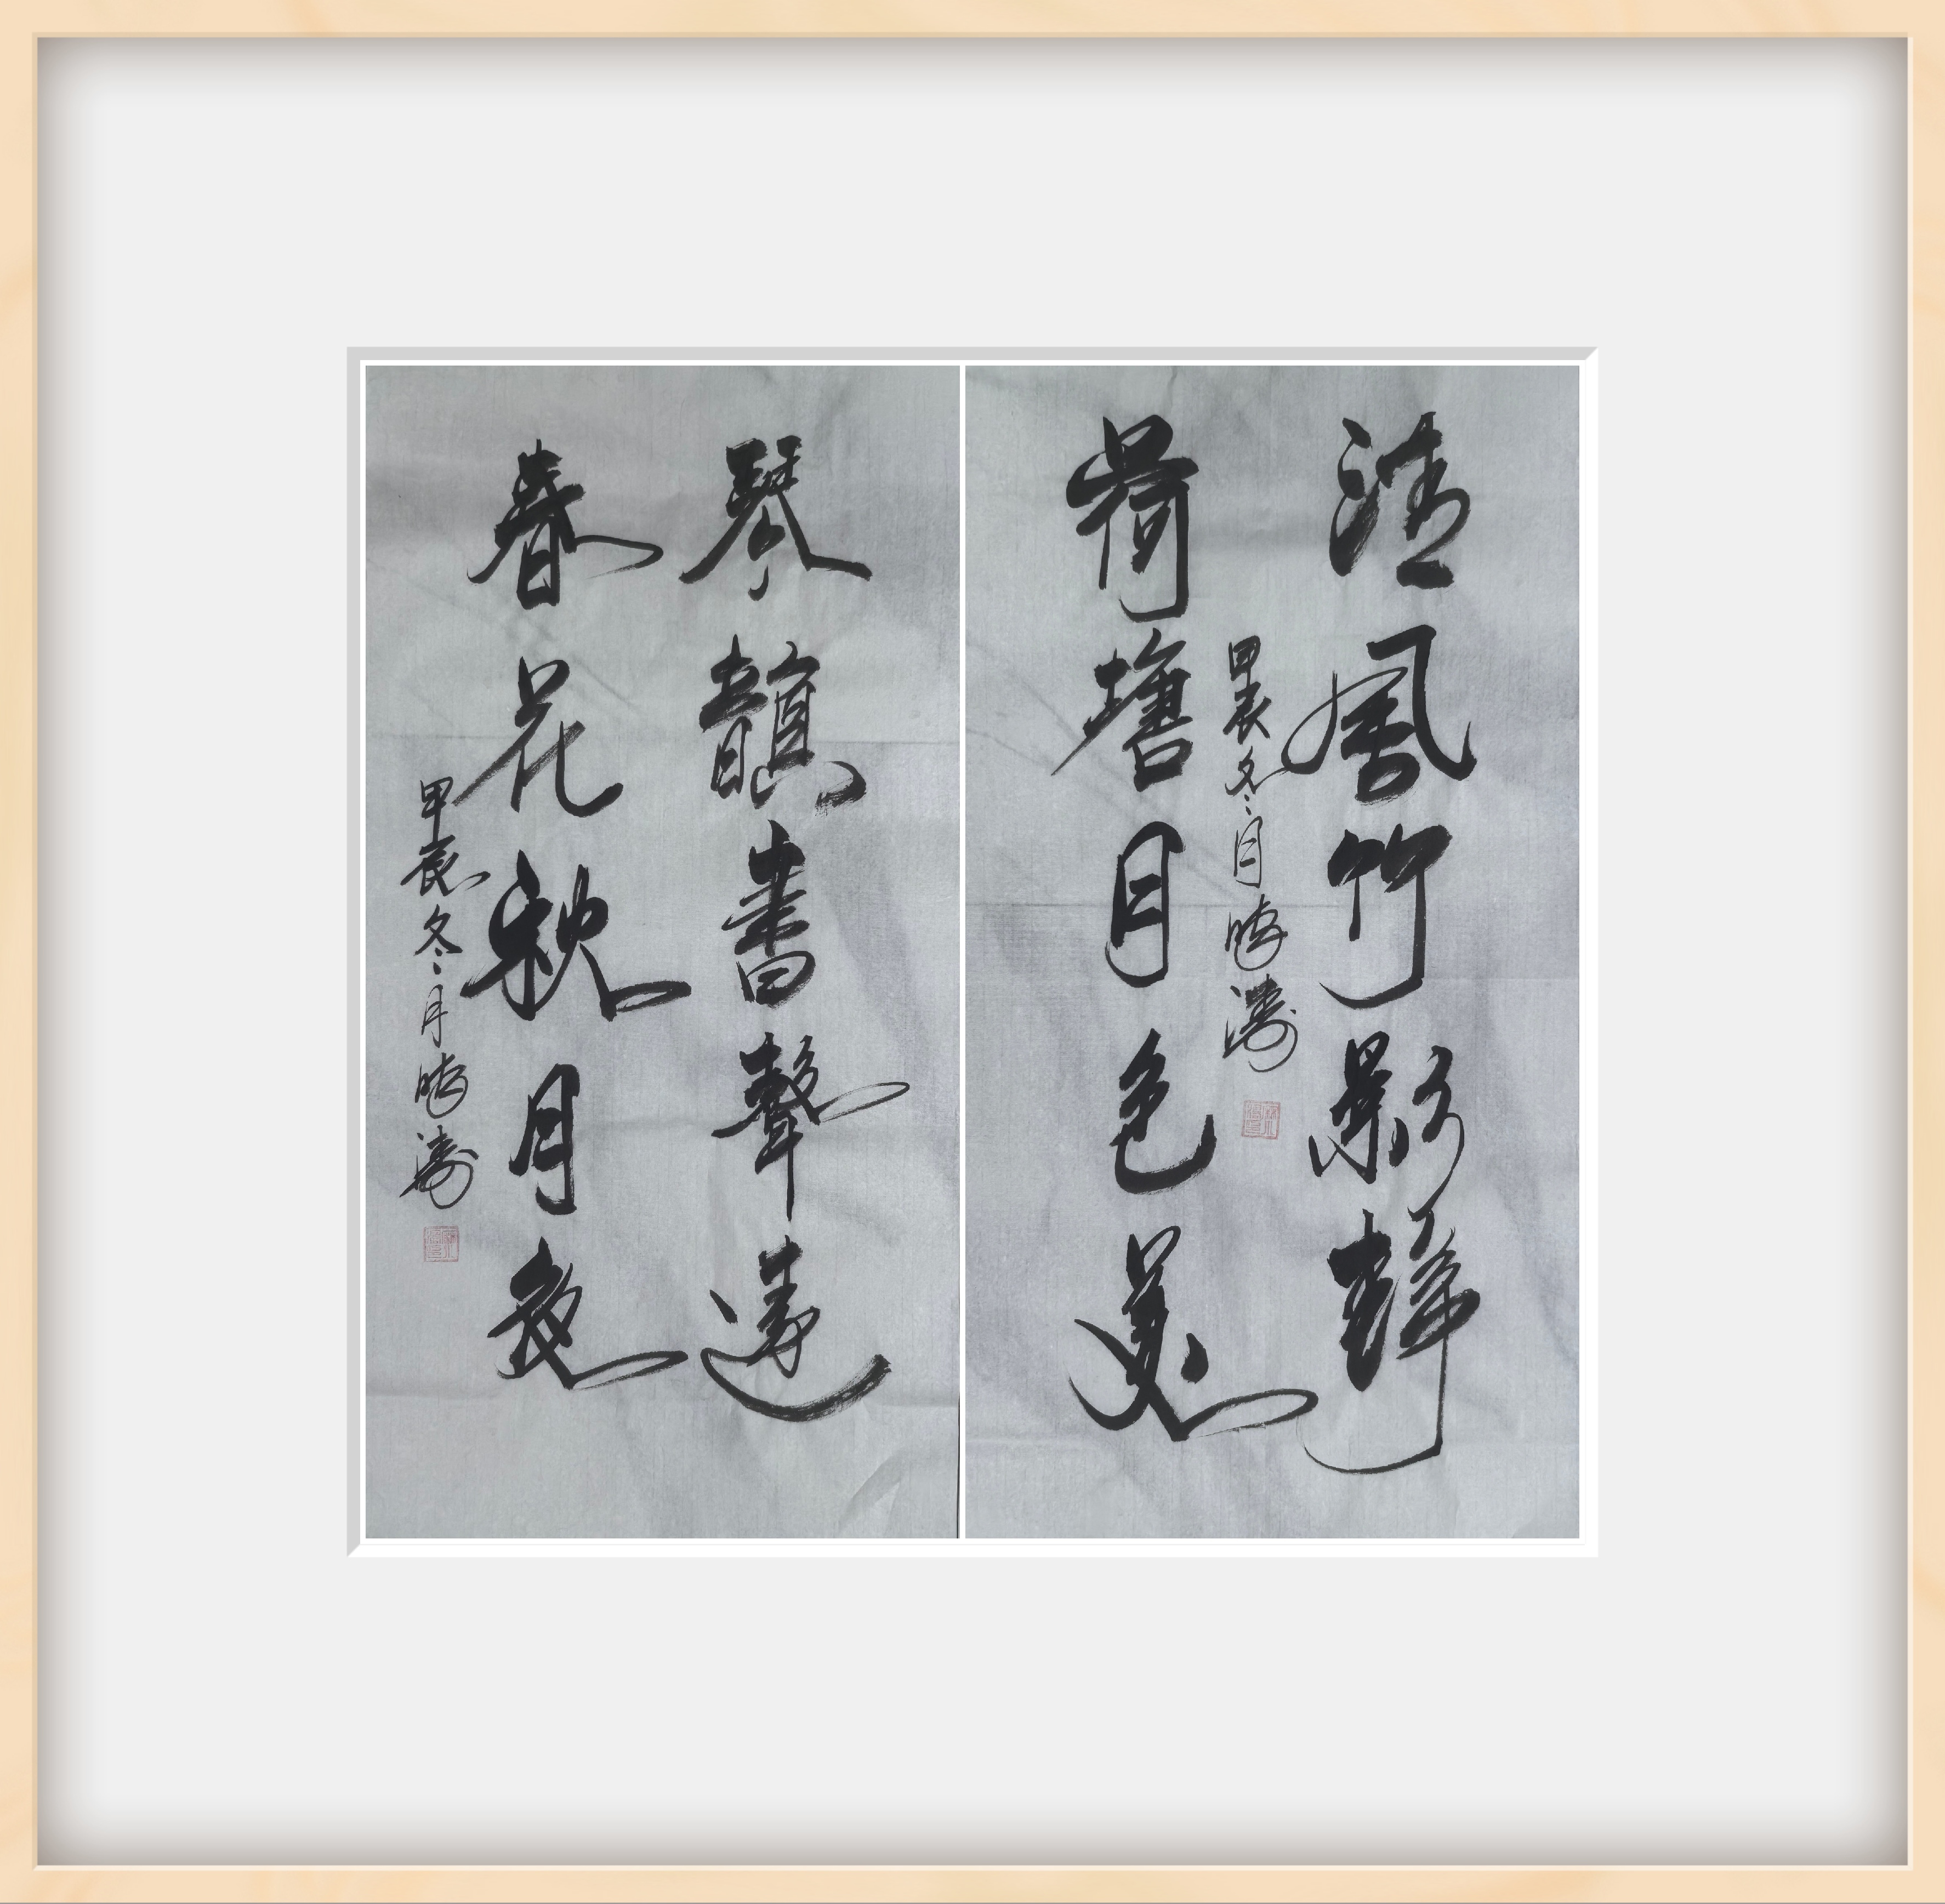 清風竹影靜
荷塘月色美
甲辰冬月 晓濤
琴韻書聲遠
春花秋月夜
甲辰冬月 晓濤